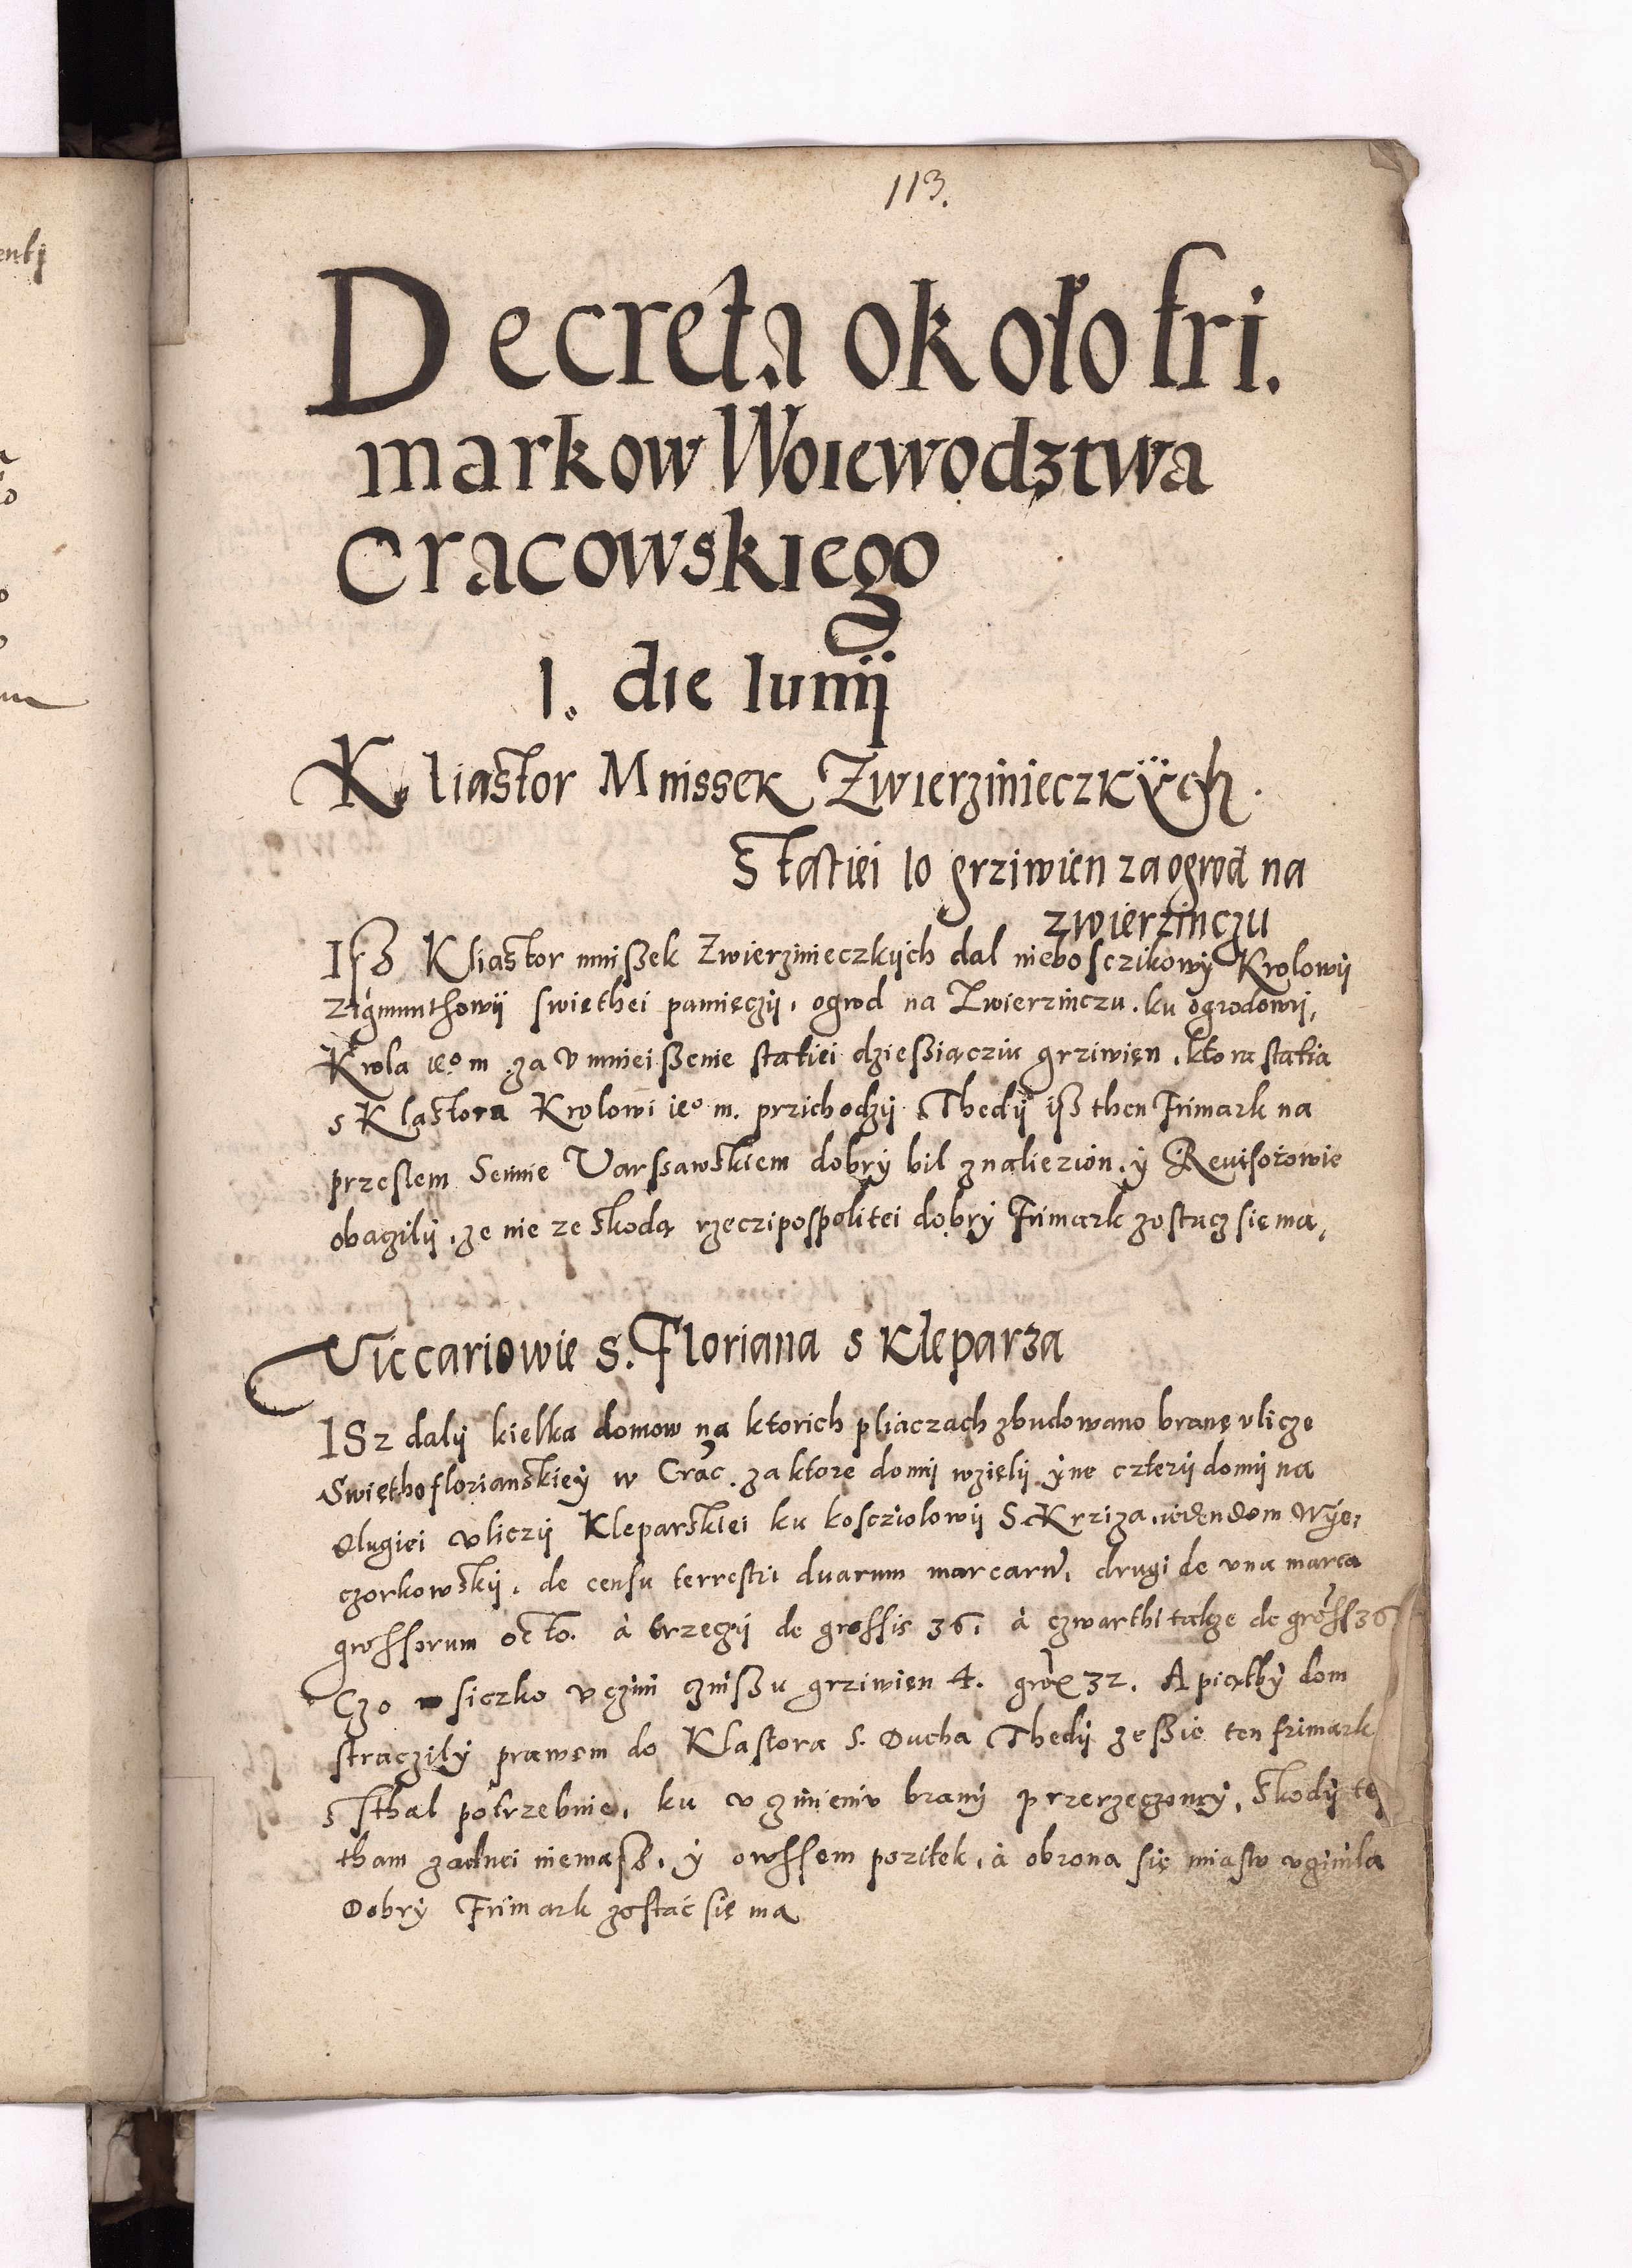 113.
Decreta około fri.
markow Woiewodztwa
Cracowskiego
1. die Iunij
Kliastor Mnissek Zwierzinieczkÿch.
Statiei 10 grziwien za ogrod na
zwierzinczu
Isß Kliastor mnißek Zwierzinieczkych dal nieboſczikowÿ Krolowij
Zigmunthowij swiethei pamięczij, ogrod na Zwierzinczu. ku ogrodowij,
Krola ieº m za vmnieißenie statiei dzießiącziu grziwięn, ktora statia
s Klastora Krolowi ieº m. przichodzij Thedij iß then Frimark na
przeslem Seimie Varssawskiem dobrÿ bil znalieziόn, ÿ Reuisorowie
obaczilij, ze nie ze skodą rzeczipospolitei dobrÿ Frimark zostacz się ma,
Viccariowie S. Floriana s Kleparza
ISz dalij kielka domow na ktorich pliaczach zbudowano branę vlicze
Swięthoflorianskieÿ w Crac. za ktore domij wzięlij ÿne czterij domij na
Dlugiei vliczij Kleparskiei ku kosciolowij S Krziza, ieden dom Wÿe,
czorkowskij, de censu terrestri duarum marcarum, drugi de vna marca
groſſorum octo. à trzeczij de groſſis 36, à czwarthi takze de groſſ 36
Czo wsiczko vczini czinßu grziwien 4. gro 32. A piąthÿ dom
straczilÿ prawem do Klastora S. Ducha Thedij ze ßie ten frimark
s sthal potrzebnie, ku vczinieniv branÿ przerzeczonÿ, Skodij teÿ
tham zadnei niemaſß, ÿ owſſem pozitek, à obrona się miastu vczinila
Dobrÿ Frimark zostać się ma